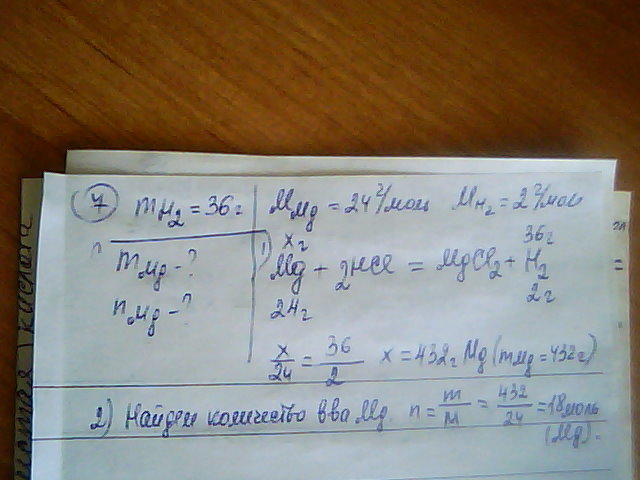 7 mH₂ = 36г
MMg = 24 г/моль MH₂ = 2 г/моль
mMg - ?
nMg - ?
1) xг 36г
Mg + 2HCl = MgCl₂ + H₂
24г 2г
x/24 = 36/2 x = 432г Mg (mMg = 432г)
2) Найдем количество вва Mg. n = m/M = 432/24 = 18 моль
(Mg).